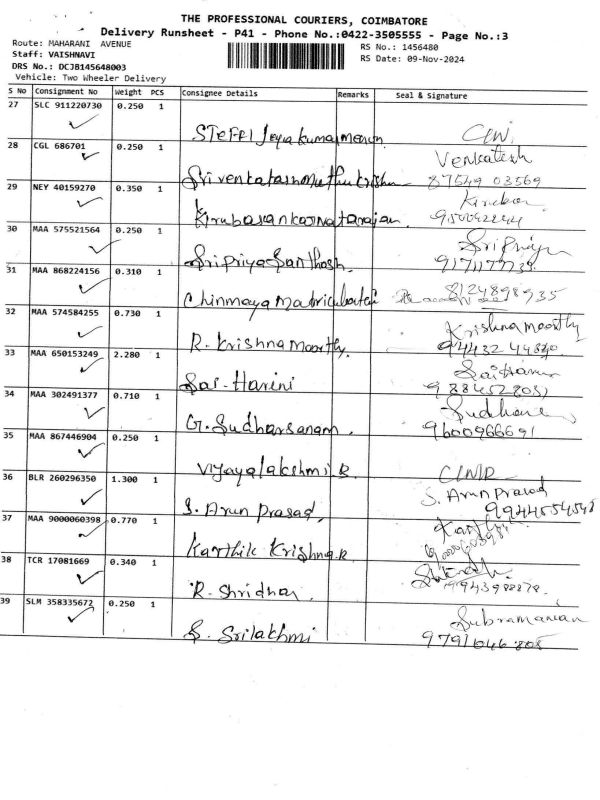 THE PROFESSIONAL COURIERS, COIMBATORE
Delivery Runsheet - P41 - Phone No.:0422-3505555 - Page No.:3
Route: MAHARANI AVENUE
Staff: VAISHNAVI
DRS No.: DCJB145648003
Vehicle: Two Wheeler Delivery
RS No.: 1456480
RS Date: 09-Nov-2024
S No Consignment No Weight PCS Consignee Details Remarks Seal & Signature
27 SLC 911220730 0.250 1
28 CGL 686701 0.250 1
Venkatesh
87549 03569
29 NEY 40159270 0.350 1
30 MAA 575521564 0.250 1
Sri Priya Santhosh
Sri Priya
31 MAA 868224156 0.310 1
Chinmaya
8124898935
32 MAA 574584255 0.730 1
R. Krishna Moorthy.
Krishna Moorthy
33 MAA 650153249 2.280 1
Sai-Harini
34 MAA 302491377 0.710 1
G. Sudharsanam.
9600966691
35 MAA 867446904 0.250 1
Vijayalakshmi R
36 BLR 260296350 1.300 1
S. Arun Prasad,
S. Arun Prasad
37 MAA 9000060398 0.770 1
Karthik Krishna.R
38 TCR 17081669 0.340 1
R. Shridhar.
39 SLM 358335672 0.250 1
S. Srilakhmi
Subramanian
9791046805